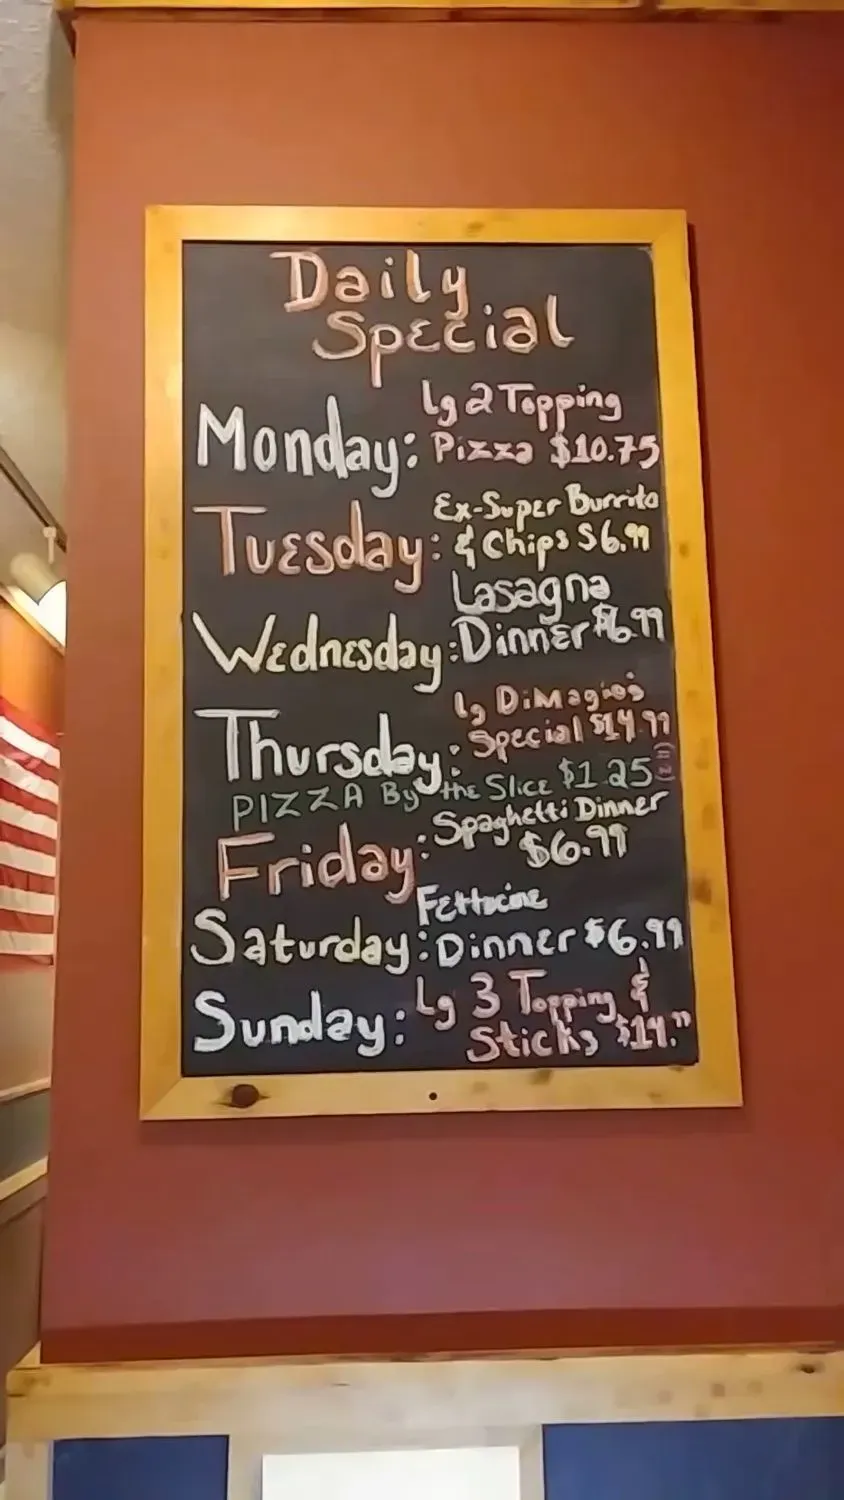 Daily
Special
Monday: Lg 2 Topping
Pizza $10.75
Tuesday: Ex-Super Burrito
& Chips $6.99
Wednesday: Lasagna
Dinner $6.99
Thursday: Lg DiMagio's
Special $14.99
PIZZA By the Slice $1.25
Friday: Spaghetti Dinner
$6.99
Saturday: Fettucine
Dinner $6.99
Sunday: Lg 3 Topping &
Sticks $14.99